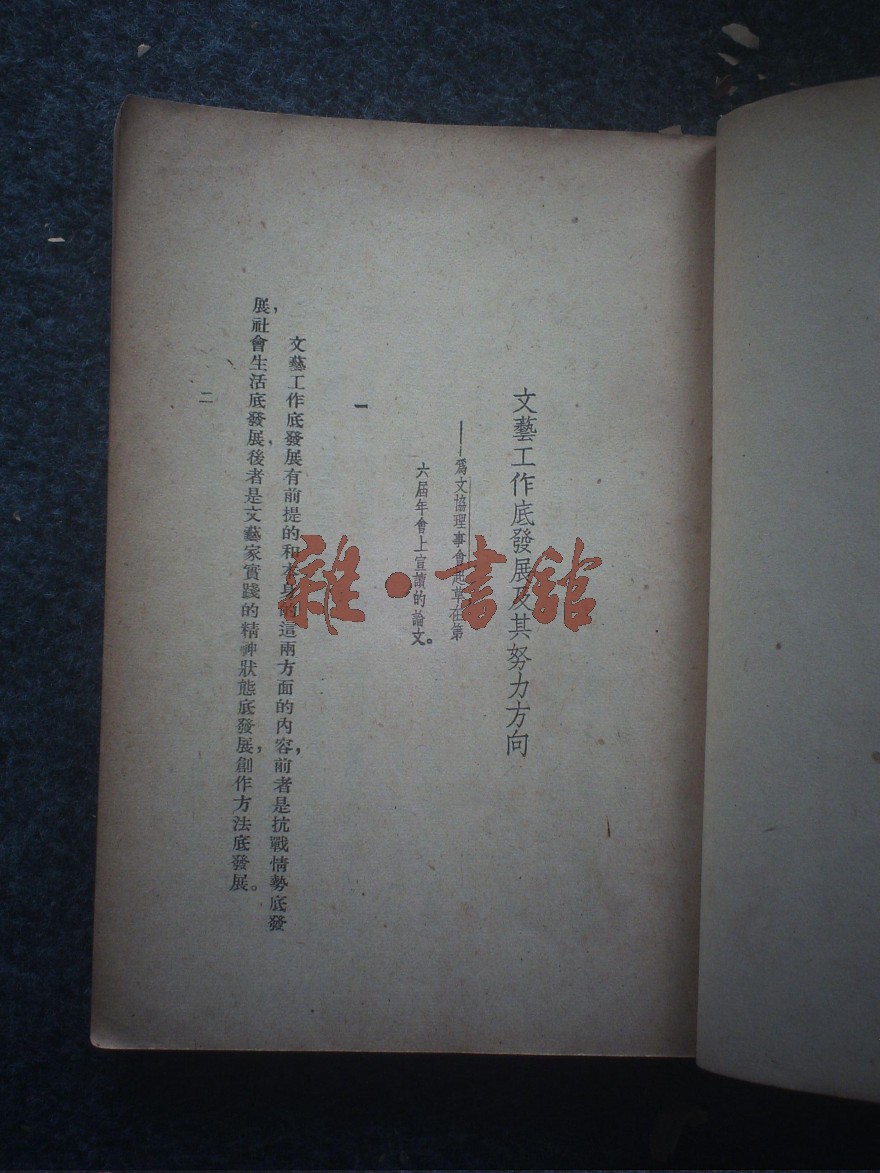 文藝工作底發展及其努力方向
——爲文協理事會起草在第
六屆年會上宣讀的論文。
一
文藝工作底發展有前提的和本身的這兩方面的內容，前者是抗戰情勢底發
展，社會生活底發展，後者是文藝家實踐的精神狀態底發展，創作方法底發展。
二
雜·書館